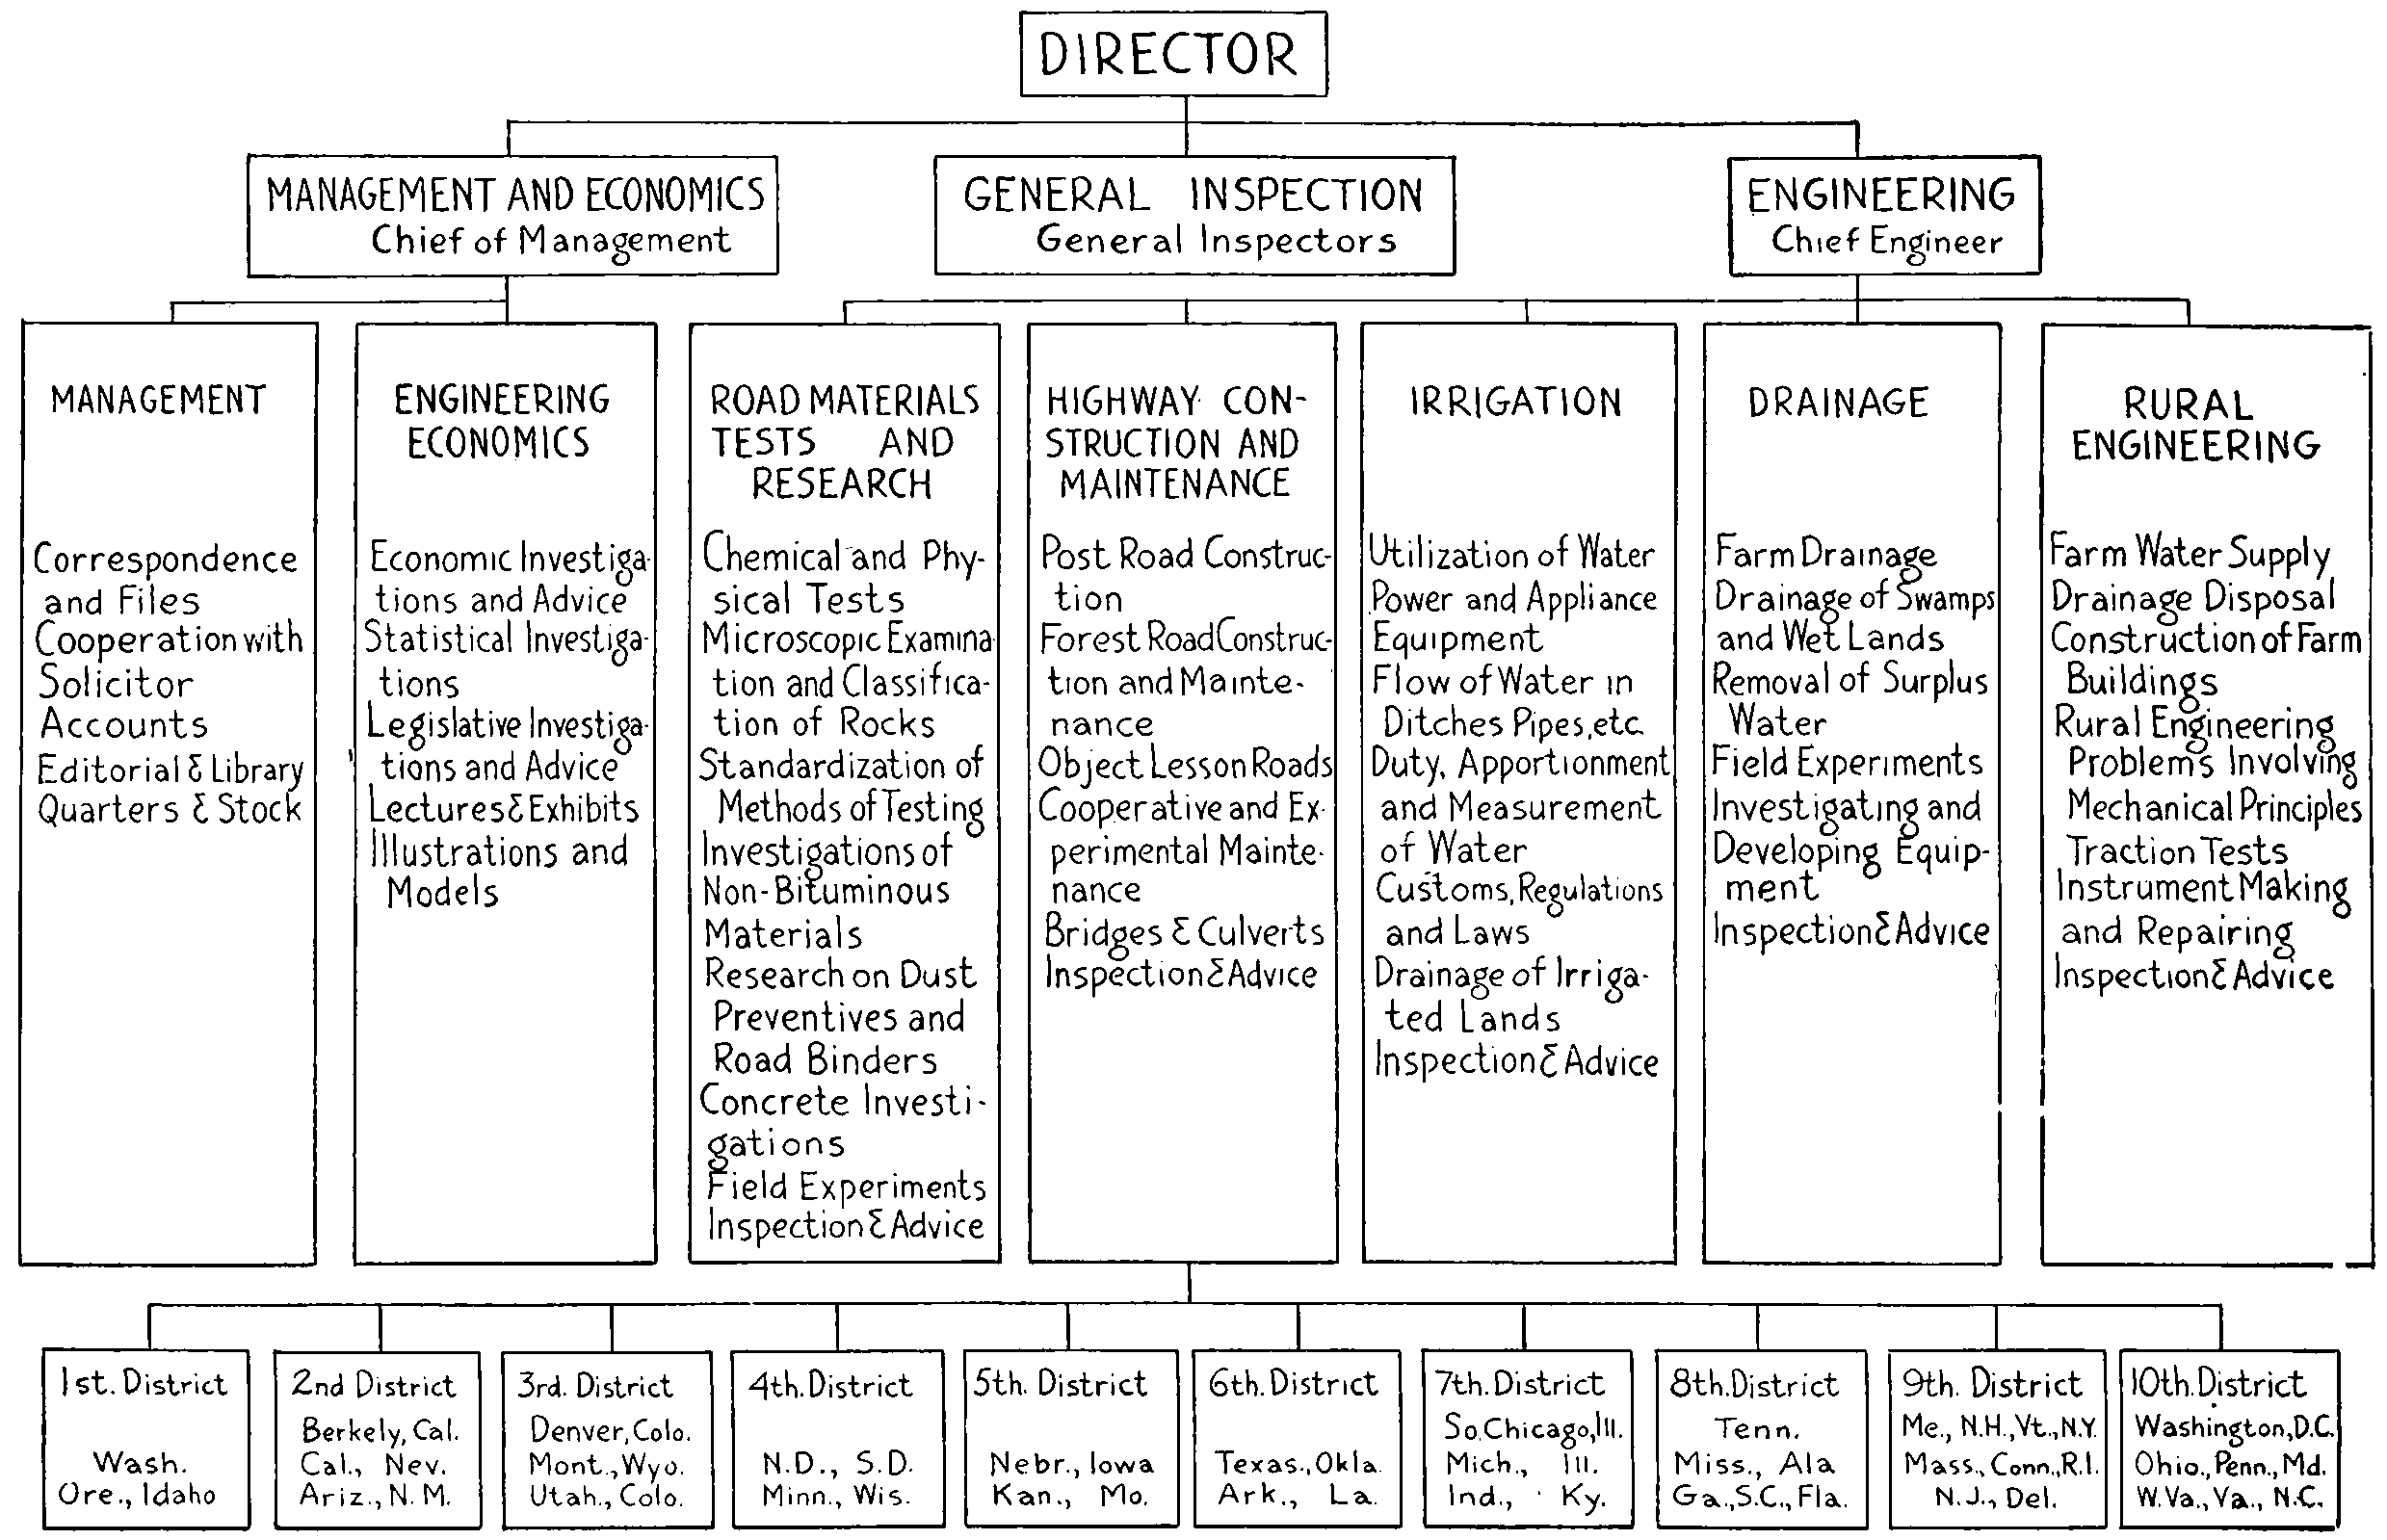 DIRECTOR
MANAGEMENT AND ECONOMICS
Chief of Management
GENERAL INSPECTION
General Inspectors
ENGINEERING
Chief Engineer
MANAGEMENT
Correspondence
and Files
Cooperation with
Solicitor
Accounts
Editorial & Library
Quarters & Stock
ENGINEERING
ECONOMICS
Economic Investiga-
tions and Advice
Statistical Investiga-
tions
Legislative Investiga-
tions and Advice
Lectures & Exhibits
Illustrations and
Models
ROAD MATERIALS
TESTS AND
RESEARCH
Chemical and Phy-
sical Tests
Microscopic Examina
tion and Classifica-
tion of Rocks
Standardization of
Methods of Testing
Investigations of
Non-Bituminous
Materials
Research on Dust
Preventives and
Road Binders
Concrete Investi-
gations
Field Experiments
Inspection & Advice
HIGHWAY CON-
STRUCTION AND
MAINTENANCE
Post Road Construc-
tion
Forest Road Construc-
tion and Mainte-
nance
Object Lesson Roads
Cooperative and Ex-
perimental Mainte-
nance
Bridges & Culverts
Inspection & Advice
IRRIGATION
Utilization of Water
Power and Appliance
Equipment
Flow of Water in
Ditches Pipes, etc.
Duty, Apportionment
and Measurement
of Water
Customs, Regulations
and Laws
Drainage of Irriga-
ted Lands
Inspection & Advice
DRAINAGE
Farm Drainage
Drainage of Swamps
and Wet Lands
Removal of Surplus
Water
Field Experiments
Investigating and
Developing Equip-
ment
Inspection & Advice
RURAL
ENGINEERING
Farm Water Supply
Drainage Disposal
Construction of Farm
Buildings
Rural Engineering
Problems Involving
Mechanical Principles
Traction Tests
Instrument Making
and Repairing
Inspection & Advice
1st. District
Wash.
Ore., Idaho
2nd District
Berkely, Cal.
Cal., Nev.
Ariz., N.M.
3rd. District
Denver, Colo.
Mont., Wyo.
Utah., Colo.
4th. District
N.D., S.D.
Minn., Wis.
5th. District
Nebr., Iowa
Kan., Mo.
6th. District
Texas., Okla.
Ark., La.
7th. District
So. Chicago, Ill.
Mich., Ill.
Ind., Ky.
8th. District
Tenn.
Miss., Ala
Ga., S.C., Fla.
9th. District
Me., N.H., Vt., N.Y.
Mass., Conn., R.I.
N.J., Del.
10th. District
Washington, D.C.
Ohio., Penn., Md.
W.Va., Va., N.C.